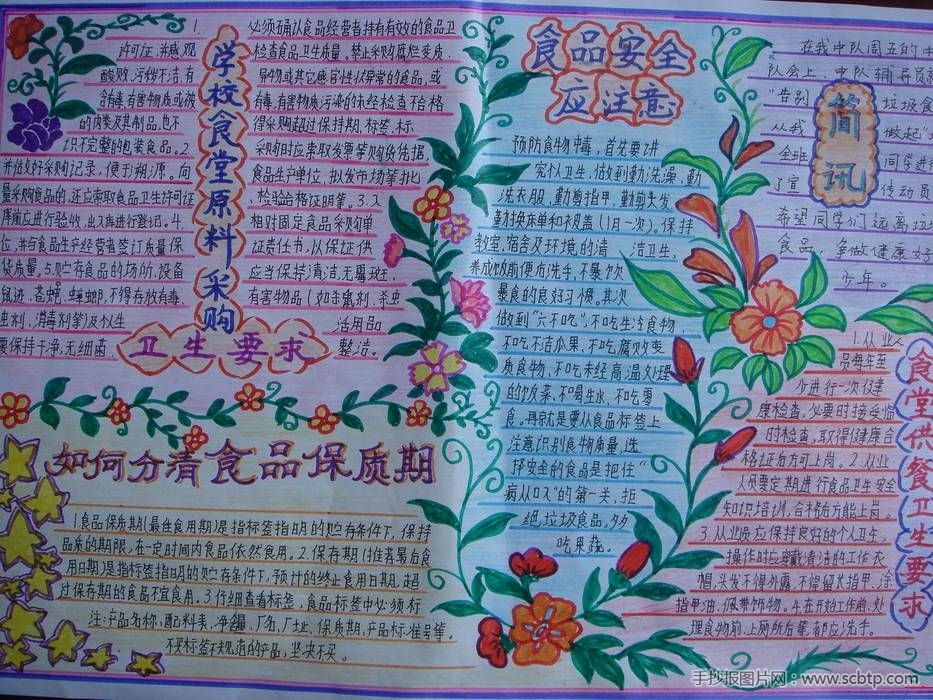 学校食堂原料采购
卫生要求
1.
必须确认食品经营者持有有效的食品卫
许可证,并感观
检查食品卫生质量。禁止采购腐烂变质、
酸败、污秽不洁、有
异物或其它感官性状异常的食品,或
含毒、有害物质或被
有毒、有害物质污染的未经检查不合格
的肉类及其制品,也不
得采购超过保持期,标签、标
识不完整的包装食品。2.
采购时应索取发票等购货凭据,
并做好采购记录,便于溯源。向
食品生产单位、批发市场等批
量采购食品的,还应索取食品卫生许可证
检验合格证明等。3.入
库前应进行验收,出入库进行登记。4.
相对固定食品采购单
位,并与食品生产经营者签订质量保
证责任书,以保证供
货质量。5.贮存食品的场所、设备
应当保持清洁,无霉斑、
鼠迹、苍蝇、蟑螂,不得存放有毒、
有害物品(如杀鼠剂、杀虫
虫剂、消毒剂等)及个人生
活用品
要保持干净、无细菌、
整洁。
如何分清食品保质期
1.食品保质期(最佳食用期)是指标签指明的贮存条件下,保持
品质的期限,在一定时间内食品依然食用。2.保存期(推荐最后食
用日期)是指标签指明的贮存条件下,预计的终止食用日期,超
过保存期的食品不宜食用。3.仔细查看标签,食品标签中必须标
注:产品名称、配料表、净含量、厂名、厂址、保质期、产品标准号等。
不买标签不规范的产品,坚决不买。
食品安全
应注意
预防食物中毒,首先要讲
究个人卫生,做到勤洗澡、勤
洗衣服、勤剪指甲、勤剪头发、
勤换床单和被盖(1月一次)。保持
教室、宿舍及环境的清洁卫生,
养成饭前便后洗手,不暴饮
暴食的良好习惯。其次
做到“六不吃”,不吃生冷食物、
不吃不洁瓜果、不吃腐败变
质食物,不吃未经高温处理
的饭菜、不喝生水、不吃零
食。再就是要从食品标签上
注意识别食物质量,选
择安全的食品是把住“
病从口入”的第一关,拒
绝垃圾食品,多多
吃果蔬。
简讯
在我中队周五的中
队会上,中队辅导员
“告别垃圾食
从我做起”
全班同学进行
了宣传动员
希望同学们远离垃
食品,争做健康好
少年。
食堂供餐卫生要求
1.从业人
员每年至
少进行一次健
康检查,必要时接受临
时检查,取得健康合
格证后方可上岗。2.从业
人员要定期进行食品卫生安全
知识培训,合格后方能上岗
3.从业员应保持良好的个人卫生,
操作时应穿戴清洁的工作衣
帽,头发不得外露,不得留长指甲,涂
指甲油,佩带饰物。4.在开始工作前、处
理食物前、上厕所后等,都应洗手。
手抄报图片网:www.scbtp.com